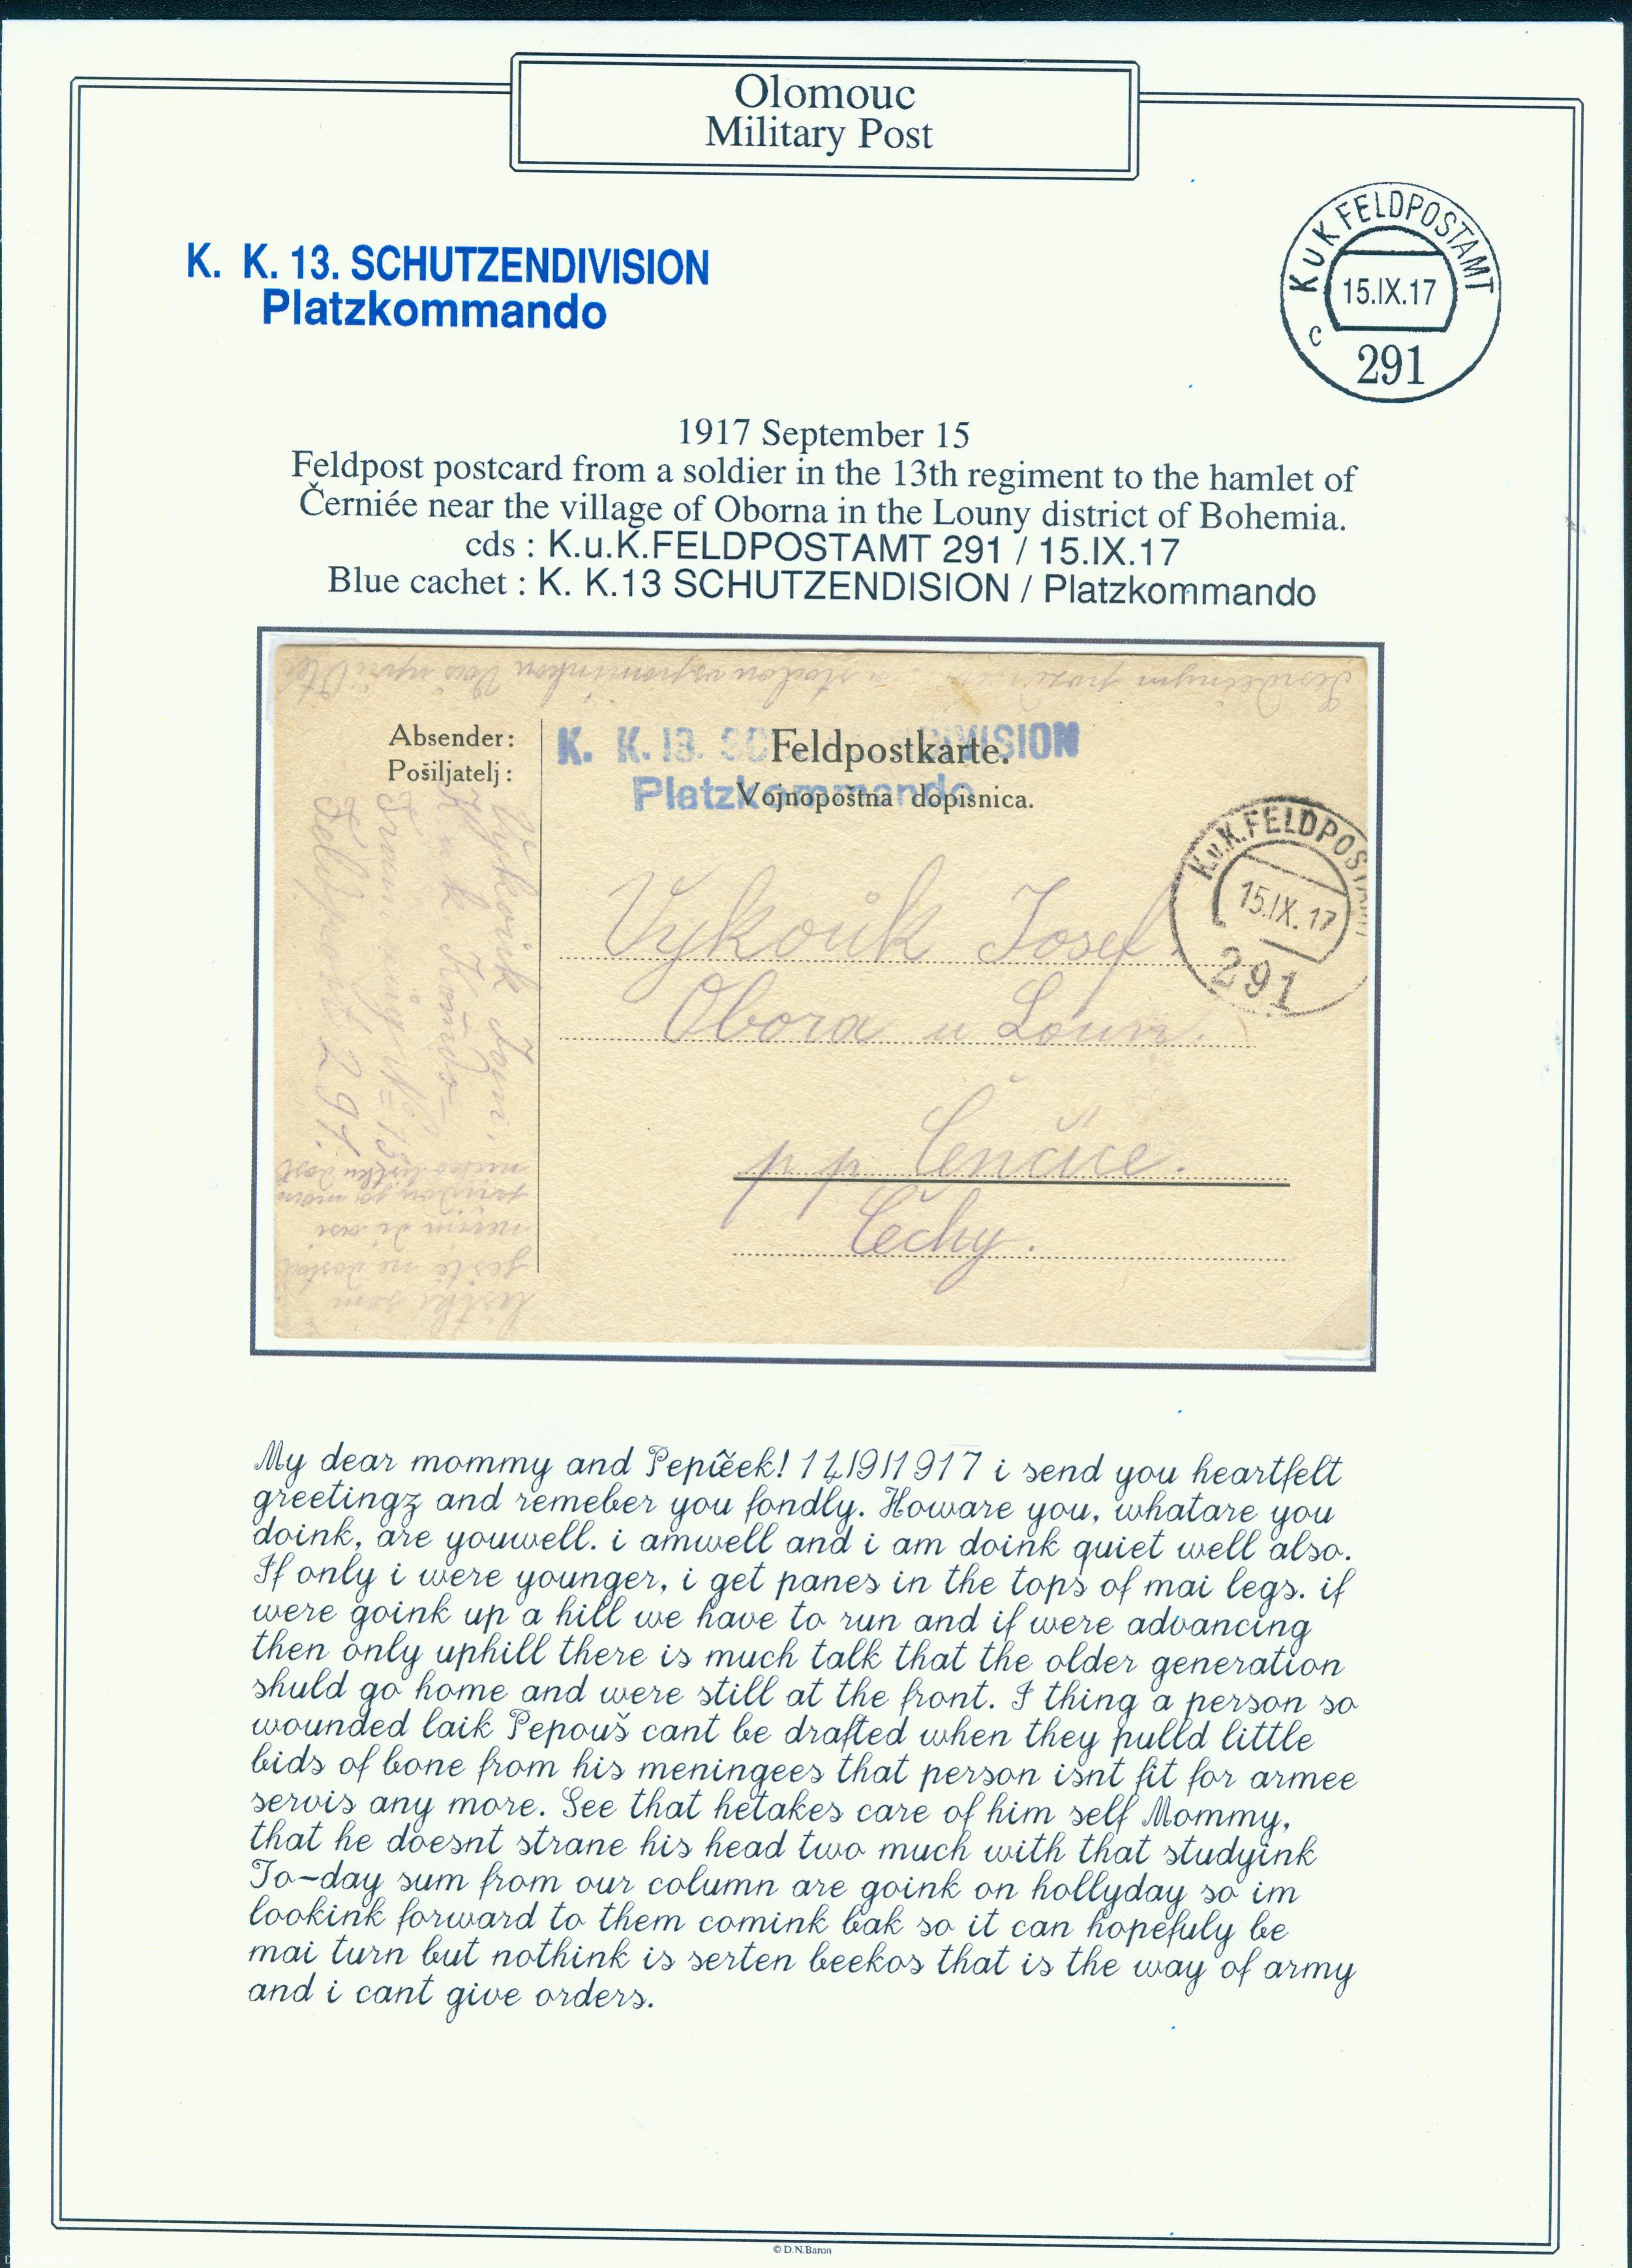 Olomouc
Military Post
K. K. 13. SCHUTZENDIVISION
Platzkommando
K u K FELDPOSTAMT
15.IX.17
c
291
1917 September 15
Feldpost postcard from a soldier in the 13th regiment to the hamlet of
Černiée near the village of Oborna in the Louny district of Bohemia.
cds : K.u.K.FELDPOSTAMT 291 / 15.IX.17
Blue cachet : K. K.13 SCHUTZENDISION / Platzkommando
Absender:
Pošiljatelj :
K. K. 13. DIVISION
Feldpostkarte.
Platzkommando
Vojnopoštna dopisnica.
K.u.K.FELDPOSTAMT
15.IX.17
291
Vykouk Josef
Obora u Loun.
p. p. Cenčice.
Čechy.
Feldpost 291.
My dear mommy and Pepíček! 14/9/1917 i send you heartfelt
greetingz and remeber you fondly. Howare you, whatare you
doink, are youwell. i amwell and i am doink quiet well also.
If only i were younger, i get panes in the tops of mai legs. if
were goink up a hill we have to run and if were advancing
then only uphill there is much talk that the older generation
shuld go home and were still at the front. I thing a person so
wounded laik Pepouš cant be drafted when they pulld little
bids of bone from his meningees that person isnt fit for armee
servis any more. See that hetakes care of him self Mommy,
that he doesnt strane his head two much with that studyink
To-day sum from our column are goink on hollyday so im
lookink forward to them comink bak so it can hopefuly be
mai turn but nothink is serten beekos that is the way of army
and i cant give orders.
© D.N.Baron